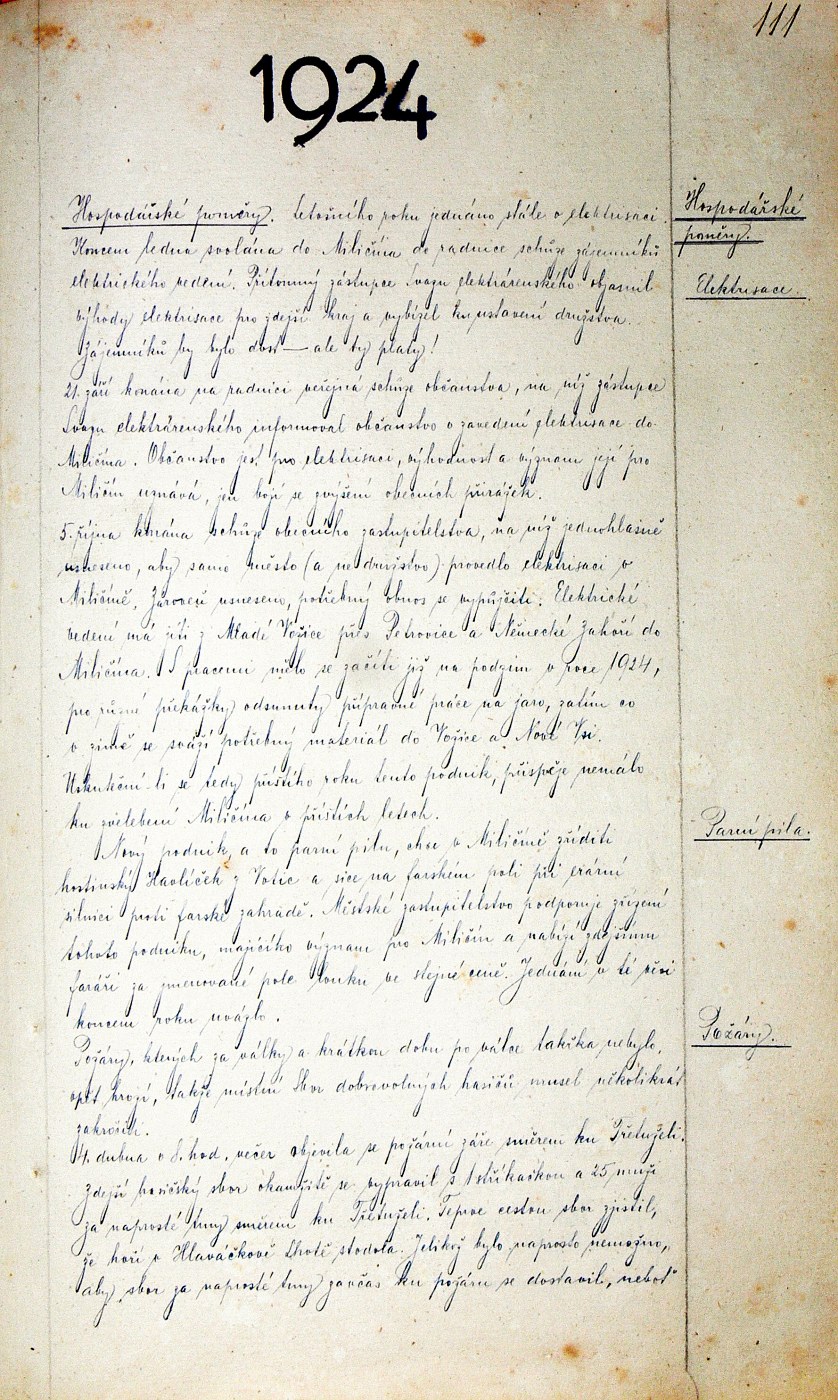 111
1924
Hospodářské poměry. Letošního roku jednáno stále o elektrisaci.
Hospodářské
poměry.
Koncem ledna svolána do Miličína do radnice schůze zájemníků
elektrického vedení. Přítomný zástupce Svazu elektrárenského objasnil
Elektrisace.
výhody elektrisace pro zdejší kraj a vybízel ku ustavení družstva.
Zájemníků by bylo dost — ale ty platy!
21. září konána na radnici veřejná schůze občanstva, na níž zástupce
Svazu elektrárenského informoval občanstvo o zavedení elektrisace do
Miličína. Občanstvo jest pro elektrisaci, výhodnost a význam její pro
Miličín uznává, jen bojí se zvýšení obecních přirážek.
5. října konána schůze obecního zastupitelstva, na níž jednohlasně
usneseno, aby samo město (a ne družstvo) provedlo elektrisaci v
Miličíně. Zároveň usneseno, potřebný obnos se vypůjčiti. Elektrické
vedení má jíti z Mladé Vožice přes Petrovice a Německé Záhoří do
Miličína. S pracemi mělo se začíti již na podzim v roce 1924,
pro různé překážky odsunuty přípravné práce na jaro, zatím co
v zimě se sváží potřebný materiál do Vožice a Nové Vsi.
Uskuteční-li se tedy příštího roku tento podnik, přispěje nemálo
ku zvelebení Miličína v příštích letech.
Nový podnik, a to parní pilu, chce v Miličíně zříditi
Parní pila.
hostinský Havlíček z Votic a sice na farském poli při erární
silnici proti farské zahradě. Městské zastupitelstvo podporuje zřízení
tohoto podniku, majícího význam pro Miličín a nabízí zdejšímu
faráři za jmenované pole louku ve stejné ceně. Jednání v té věci
koncem roku uvázlo.
Požáry, kterých za války a krátkou dobu po válce takřka nebylo,
Požáry.
opět hrozí, takže místní Sbor dobrovolných hasičů musel několikrát
zakročiti.
4. dubna o 8. hod. večer objevila se požární záře směrem ku Třetuželi.
Zdejší hasičský sbor okamžitě se vypravil s 1 stříkačkou a 25 muži
za naprosté tmy směrem ku Třetuželi. Teprve cestou sbor zjistil,
že hoří v Hlaváčkově Lhotě stodola. Jelikož bylo naprosto nemožno,
aby sbor za naprosté tmy zavčas ku požáru se dostavil, neboť